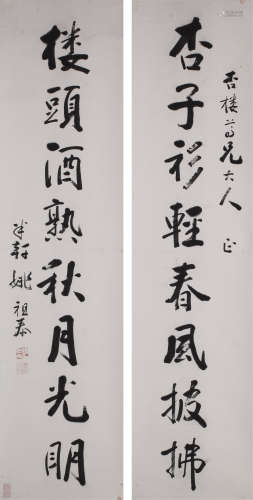 杏子衫輕春風披拂
杏樓尊兄大人 正
樓頭酒熟秋月光明
半軒姚祖泰